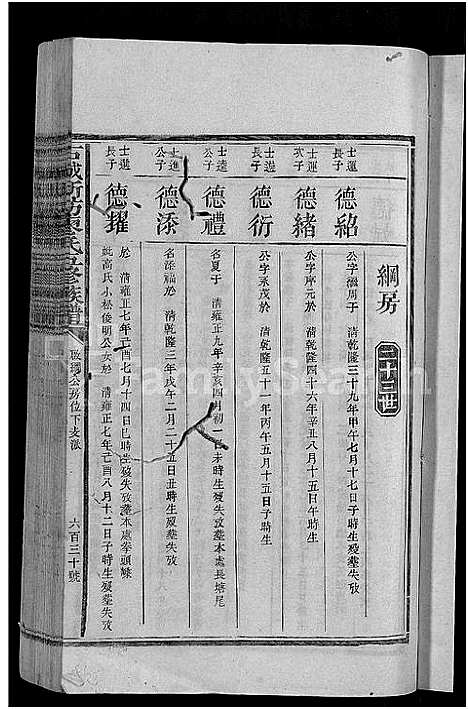 綱房
二十二世
士運長子
德紹
公字溫周于 清乾隆三十九年甲午七月十七日子時生歿塟失攷
士運次子
德緒
公字摩元於 清乾隆四十六年辛丑八月十五日午時生
士運長子
德衍
公字永茂於 清乾隆五十一年丙午五月十五日子時生
士遠公子
德禮
名夏于 清雍正九年辛亥四月初一日未時生歿塟本處長塘尾
士進公子
德添
名添福於 清乾隆三年戊午二月二十五日丑時生歿塟失攷
士進長子
德擢
於 清雍正七年己酉七月十四日巳時生歿失攷塟本處拳頭𡑞
娶高氏小松俊明公女於 清雍正七年己酉八月十二日子時生歿塟失攷
石城 陳氏五修族譜
公房位下支派
六百三十號